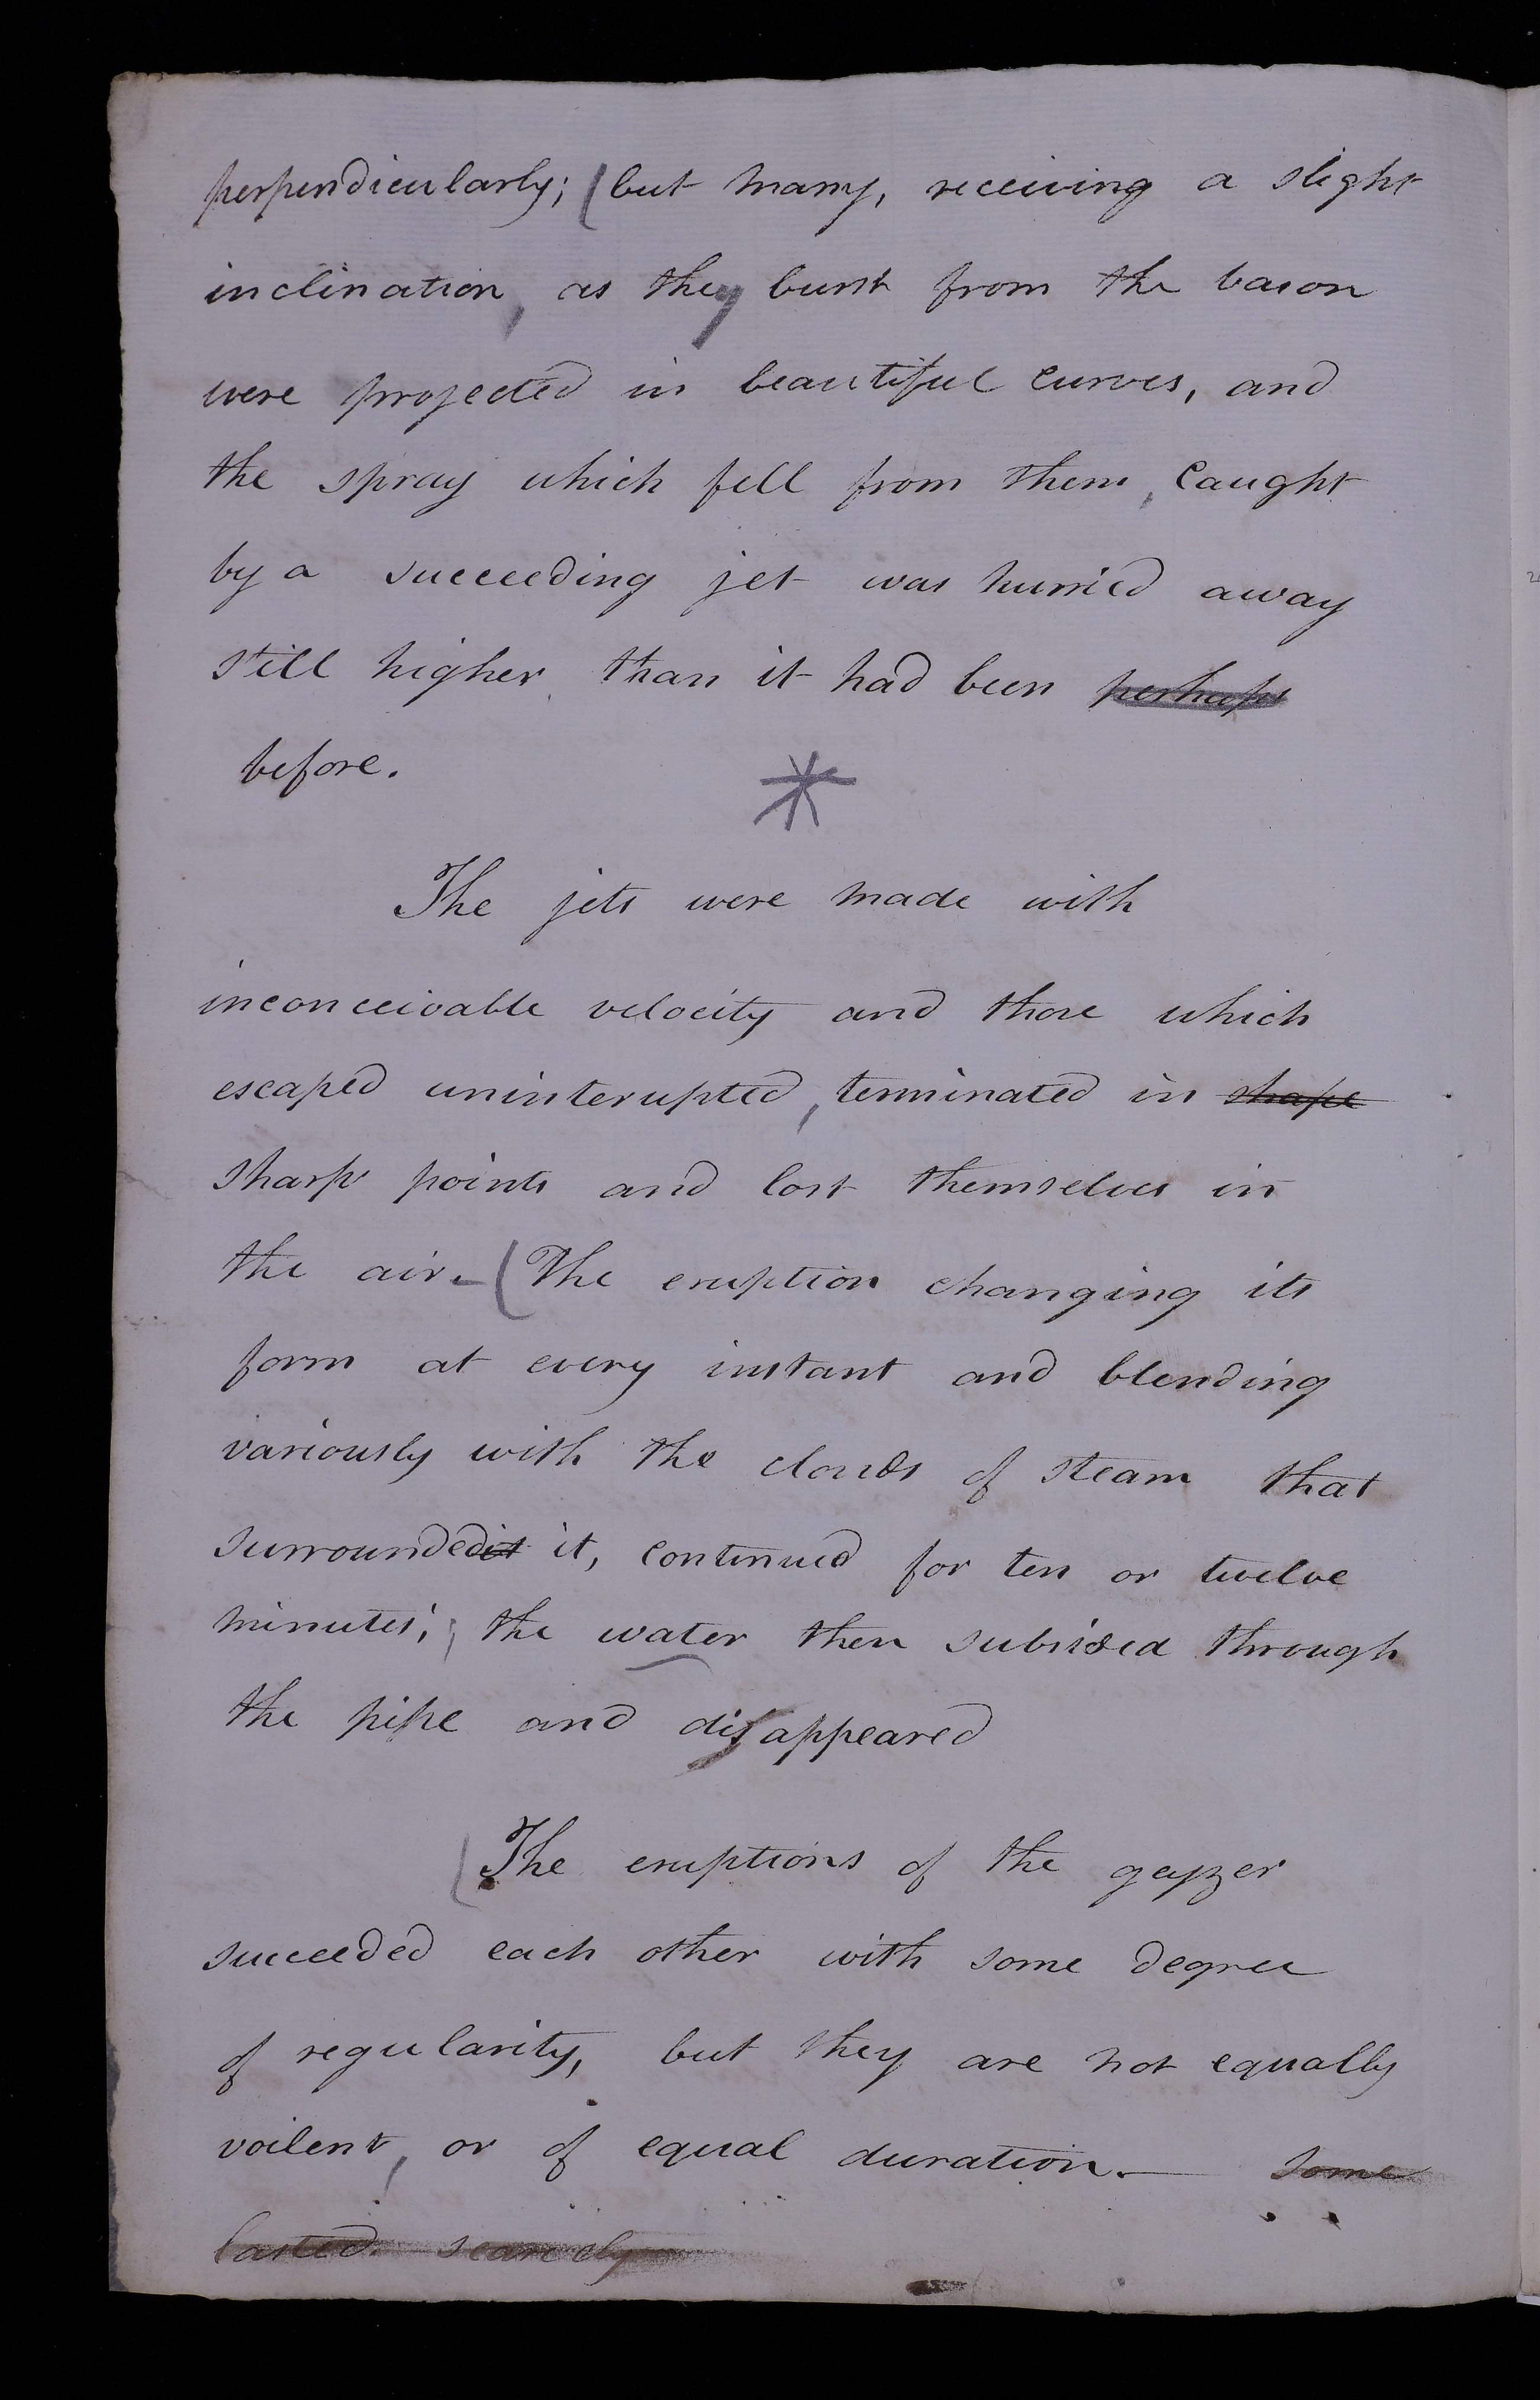 perpendicularly; (but many, receiving a slight
inclination, as they burst from the bason
were projected in beautiful curves, and
the spray which fell from them, caught
by a succeeding jet was hurried away
still higher than it had been perhaps
before.
*
The jets were made with
inconceivable velocity and those which
escaped uninterupted, terminated in shape
sharp points and lost themselves in
the air. (The eruption changing its
form at every instant and blending
variously with the clouds of steam that
surrounded it it, continued for ten or twelve
minutes; the water then subsided through
the pipe and disappeared
(The eruptions of the geyzer
succeeded each other with some degree
of regularity, but they are not equally
voilent, or of equal duration. some
lasted scarcely